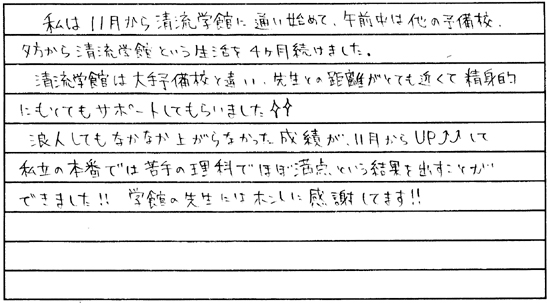 私は11月から清流学館に通い始めて、午前中は他の予備校、
夕方から清流学館という生活を4ヶ月続けました。
清流学館は大手予備校と違い、先生との距離がとても近くて精身的
にもとてもサポートしてもらいました⇧⇧
浪人してもなかなか上がらなかった成績が、11月からUP⤴⤴して
私立の本番では苦手の理科でほぼ満点という結果を出すことが
できました!! 学館の先生にはホントに感謝してます!!